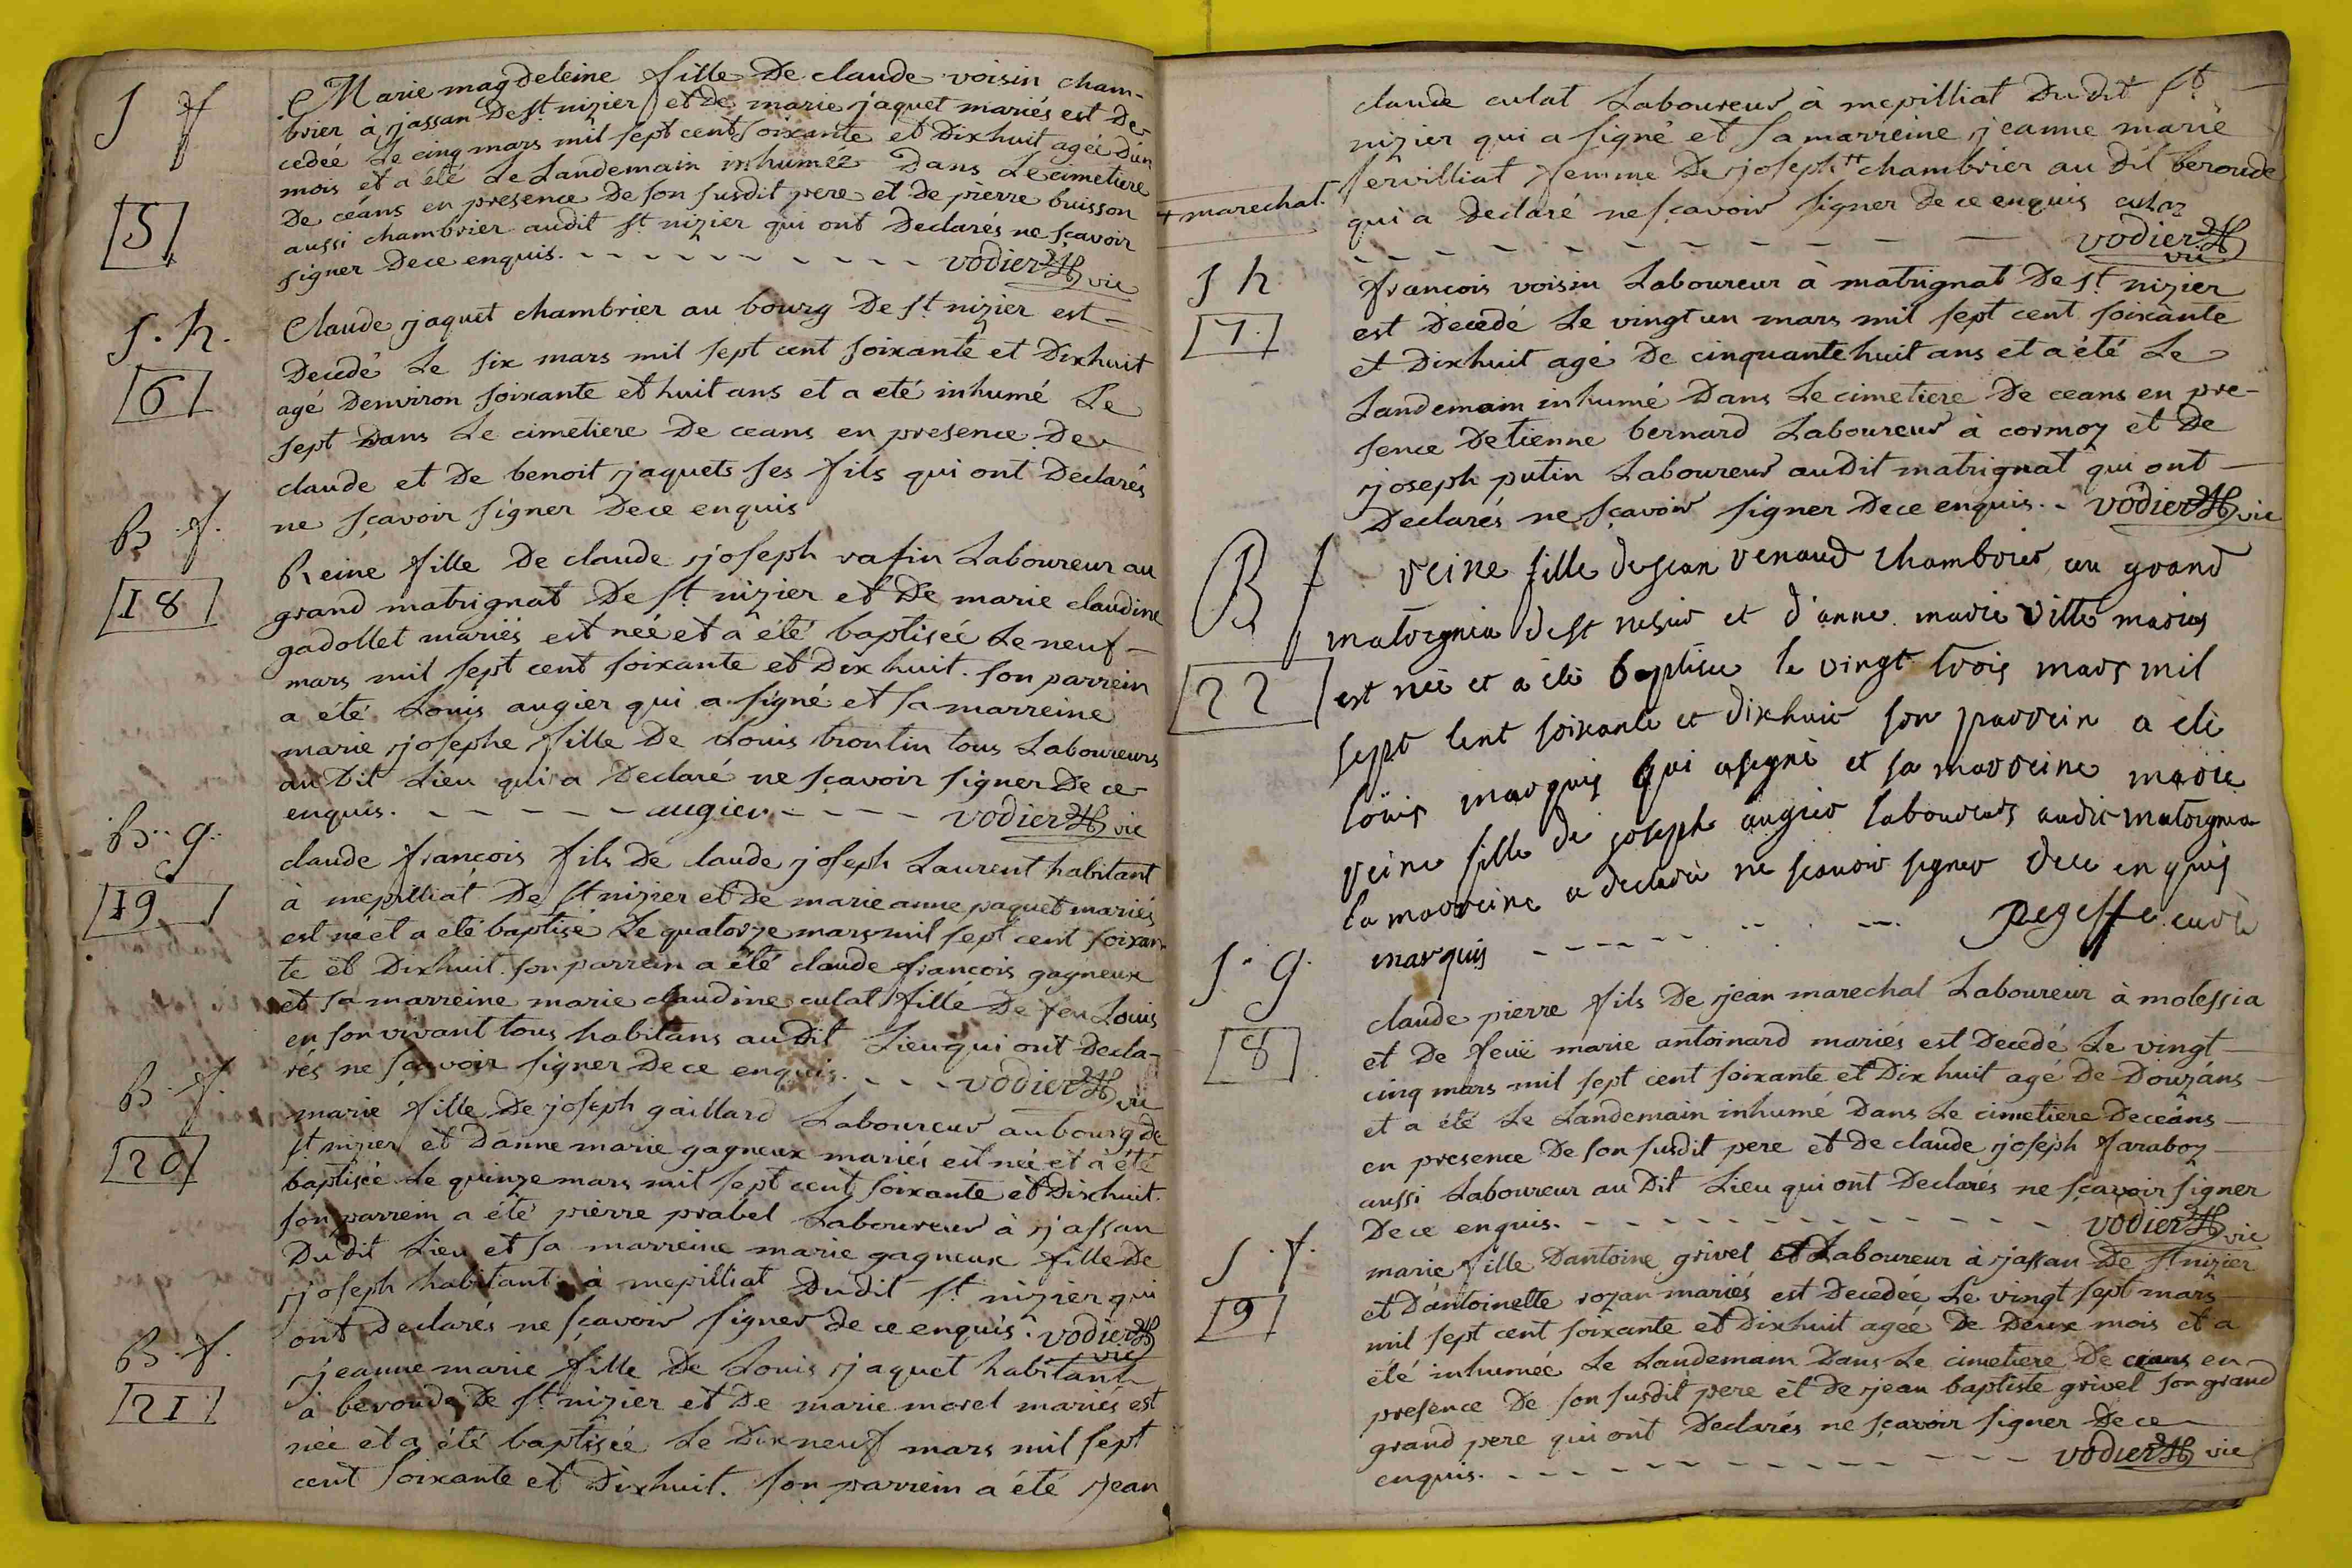 S f
Marie magdeleine fille De claude voisin cham-
brier à jassan De st nizier et de marie jaquet mariés est de-
cedeé Le cinq mars mil sept cent soixante et Dixhuit agée d'un
mois et a été Le Landemain inhumée Dans Le cimetiere
De céans en presence De son susdit pere et de pierre buisson
5
aussi chambrier audit st nizier qui ont Declarés ne sçavoir
signer Dece enquis. - - - - - - - - - - vodier vic
S. h.
Claude jaquet chambrier au bourg De st nizier est
Decedé Le six mars mil sept cent soixante et Dixhuit
6
agé Denviron soixante et huit ans et a eté inhumé Le
sept Dans Le cimetiere De ceans en presence De
claude et De benoit jaquets ses fils qui ont Declarés
ne sçavoir signer Dece enquis
B. f.
Reine fille De claude joseph vafin Laboureur au
18
grand matrignat De st nizier et De marie claudine
gadollet mariés est neé et a été baptisée Le neuf
mars mil sept cent soixante et Dix huit. son parrein
a eté Louis augier qui a signé et sa marreine
marie josephe fille De Louis trontin tous Laboureurs
au Dit Lieu qui a Declaré ne sçavoir signer De ce
enquis. - - - - - augier - - - - vodier vic
B. g.
claude francois fils De laude joseph Laurent habitant
19
à mepilliat De st nizier et de marie anne paquet mariés
est né et a eté baptisé Le quatorze mars mil sept cent soixan-
te et Dixhuit. son parrein a été claude francois gagneux
et sa marreine marie claudine culat fille De feu Louis
en son vivant tous habitans au Dit Lieu qui ont Decla-
rés ne sçavoir signer Dece enquis. - - - vodier vic
B. f.
marie fille De joseph gaillard Laboureur au bourg de
20
st nizier et Danne marie gagneux mariés est neé et à été
baptisée Le quinze mars mil sept cent soixante et Dixhuit.
son parrein a été pierre prabel Laboureur à jassan
Du dit Lieu et sa marreine marie gagneux fille De
joseph habitant à mepilliat Dudit st nizier qui
ont Declarés ne sçavoir signer de ce enquis. vodier vic
B. f.
jeanne marie fille De Louis jaquet habitant
21
à beroude De st nizier et De marie morel mariés est
née et a été baptisée Le Dix neuf mars mil sept
cent soixante et Dixhuit. son parrein a été jean
claude culat Laboureur à mepilliat Dudit st
nizier qui a signé et sa marreine jeanne marie
servilliat femme De joseph ++ chambrier au dit beroude
+ marechal.
qui a Declaré ne sçavoir signer de ce enquis culaz
- - - - - - - - - vodier vic
S h
francois voisin Laboureur à matrignat De st nizier
7
est Decedé Le vingt un mars mil sept cent soixante
et Dixhuit agé De cinquante huit ans et a été Le
Landemain inhumé Dans Le cimetiere De ceans en pre-
sence Detienne bernard Laboureur à cormoz et De
joseph putin Laboureur audit matrignat qui ont
Declarés ne sçavoir signer Dece enquis. - vodier vic
B f
reine fille de jean renaud chambrier au grand
matregnia dest nesier et d'anne marie ville maries
22
est nèe et a ètè baptisee le vingt trois mars mil
sept cent soixante et dixhuit son parrein a etè
loüis marquis qui asegnè et sa marreine marie
reine fille de joseph augier laboureurs audit matregnia
la marreine a declarèe ne scavoir segner dece enquis
marquis - - - - - - - - pegesse curè
S. g.
claude pierre fils De jean marechal Laboureur à molessia
8
et De feüe marie antoinard mariés est Decedé Le vingt
cinq mars mil sept cent soixante et Dix huit agé De Douz ans
et a été Le Landemain inhumé Dans Le cimetiere De ceans
en presence De son susdit pere et De claude joseph faraboz
aussi Laboureur au Dit Lieu qui ont Declarés ne sçavoir signer
De ce enquis. - - - - - - - - - - - - vodier vic
S. f.
marie fille Dantoine grivel et Laboureur à jassan De st nizier
9
et D'antoinette rozan mariés est Decedée Le vingt sept mars
mil sept cent soixante et Dixhuit ageé De Deux mois et a
été inhumée Le Landemain Dans Le cimetiere De ceans en
presence De son susdit pere et De jean baptiste grivel son grand
grand pere qui ont Declarés ne sçavoir signer De ce
enquis. - - - - - - - - - - - - - vodier vic